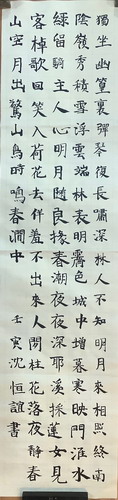 獨坐幽篁裏彈琴復長嘯深林人不知明月來相照終南
陰嶺秀積雪浮雲端林表明霽色城中增暮寒映門淮水
綠留騎主人心明月随良掾春潮夜夜深耶溪採蓮女見
客棹歌回笑入荷花去佯羞不出來人閑桂花落夜靜春
山空月出驚山鳥時鳴春澗中
壬寅沈恒誼書